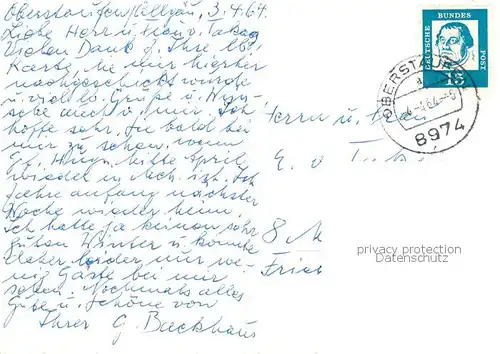 Oberstaufen/Allgäu, 3.4.64
Liebe Herr u. Frau v.
Vielen Dank f. Ihre lb.
Karte, die mir hierher
nachgeschickt wurde
u. viel lb. Grüße u. Wün-
sche auch v. mir. Ich
hoffe sehr, Sie bald bei
mir zu sehen, wenn
Mitte April
wieder in ist. Ich
fahre anfang nächster
Woche wieder heim.
Ich hatte ja keinen sehr
guten Winter u. konnte
daher leider nur we-
nig Gäste bei mir
sehen. Nochmals alles
Gute u. Schöne von
Ihrer G. Backhaus
DEUTSCHE BUNDES POST
15
OBERSTAUFEN
8974
Herrn u. Frau
8 M
privacy protection
Datenschutz